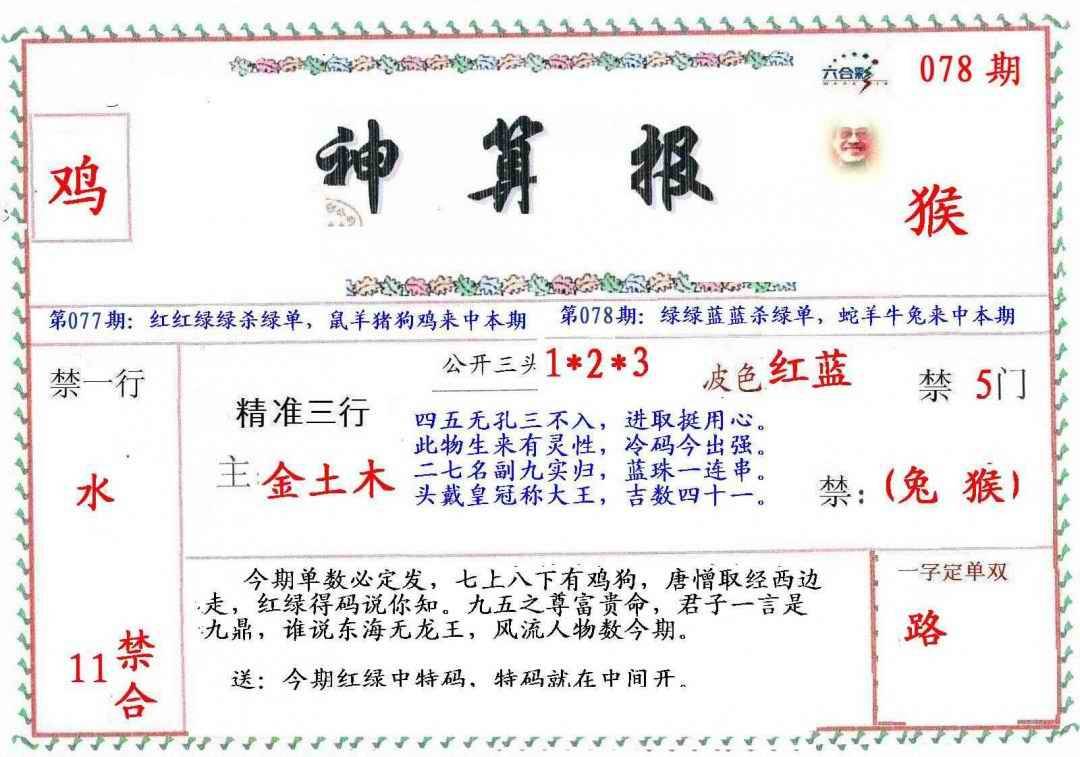 六合彩
078 期
鸡
神算报
猴
第077期：红红绿绿杀绿单，鼠羊猪狗鸡来中本期
第078期：绿绿蓝蓝杀绿单，蛇羊牛兔来中本期
禁一行
水
11禁合
公开三头1*2*3
波色红蓝
禁 5门
精准三行
主：金土木
四五无孔三不入，进取挺用心。
此物生来有灵性，冷码今出强。
二七名副九实归，蓝珠一连串。
头戴皇冠称大王，吉数四十一。
禁：(兔 猴)
今期单数必定发，七上八下有鸡狗，唐憎取经西边
走，红绿得码说你知。九五之尊富贵命，君子一言是
九鼎，谁说东海无龙王，风流人物数今期。
送：今期红绿中特码，特码就在中间开。
一字定单双
路